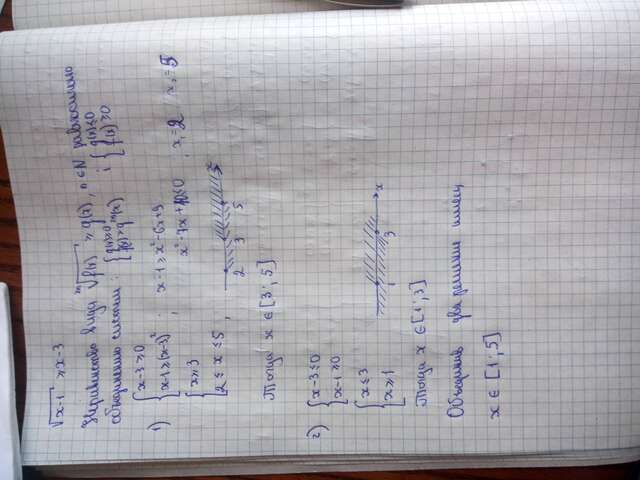 √x-1 ≥ x-3
Неравенство вида ²ⁿ√f(x) ≥ g(x), n ∈ N равносильно
объединению систем: { g(x)≥0 f(x)≥g²ⁿ(x) і { g(x)≤0 f(x)≥0
1) { x-3≥0
x-1≥(x-3)² ; x-1≥x²-6x+9
x²-7x+10≤0, x₁=2 x₂=5
{ x≥3
2 ≤ x ≤ 5 ;
2 3 5 x
Тогда x ∈ [3; 5]
2) { x-3≤0
x-1≥0
{ x≤3
x≥1
1 3 x
Тогда x ∈ [1; 3]
Объединив два решение имеем
x ∈ [1; 5]